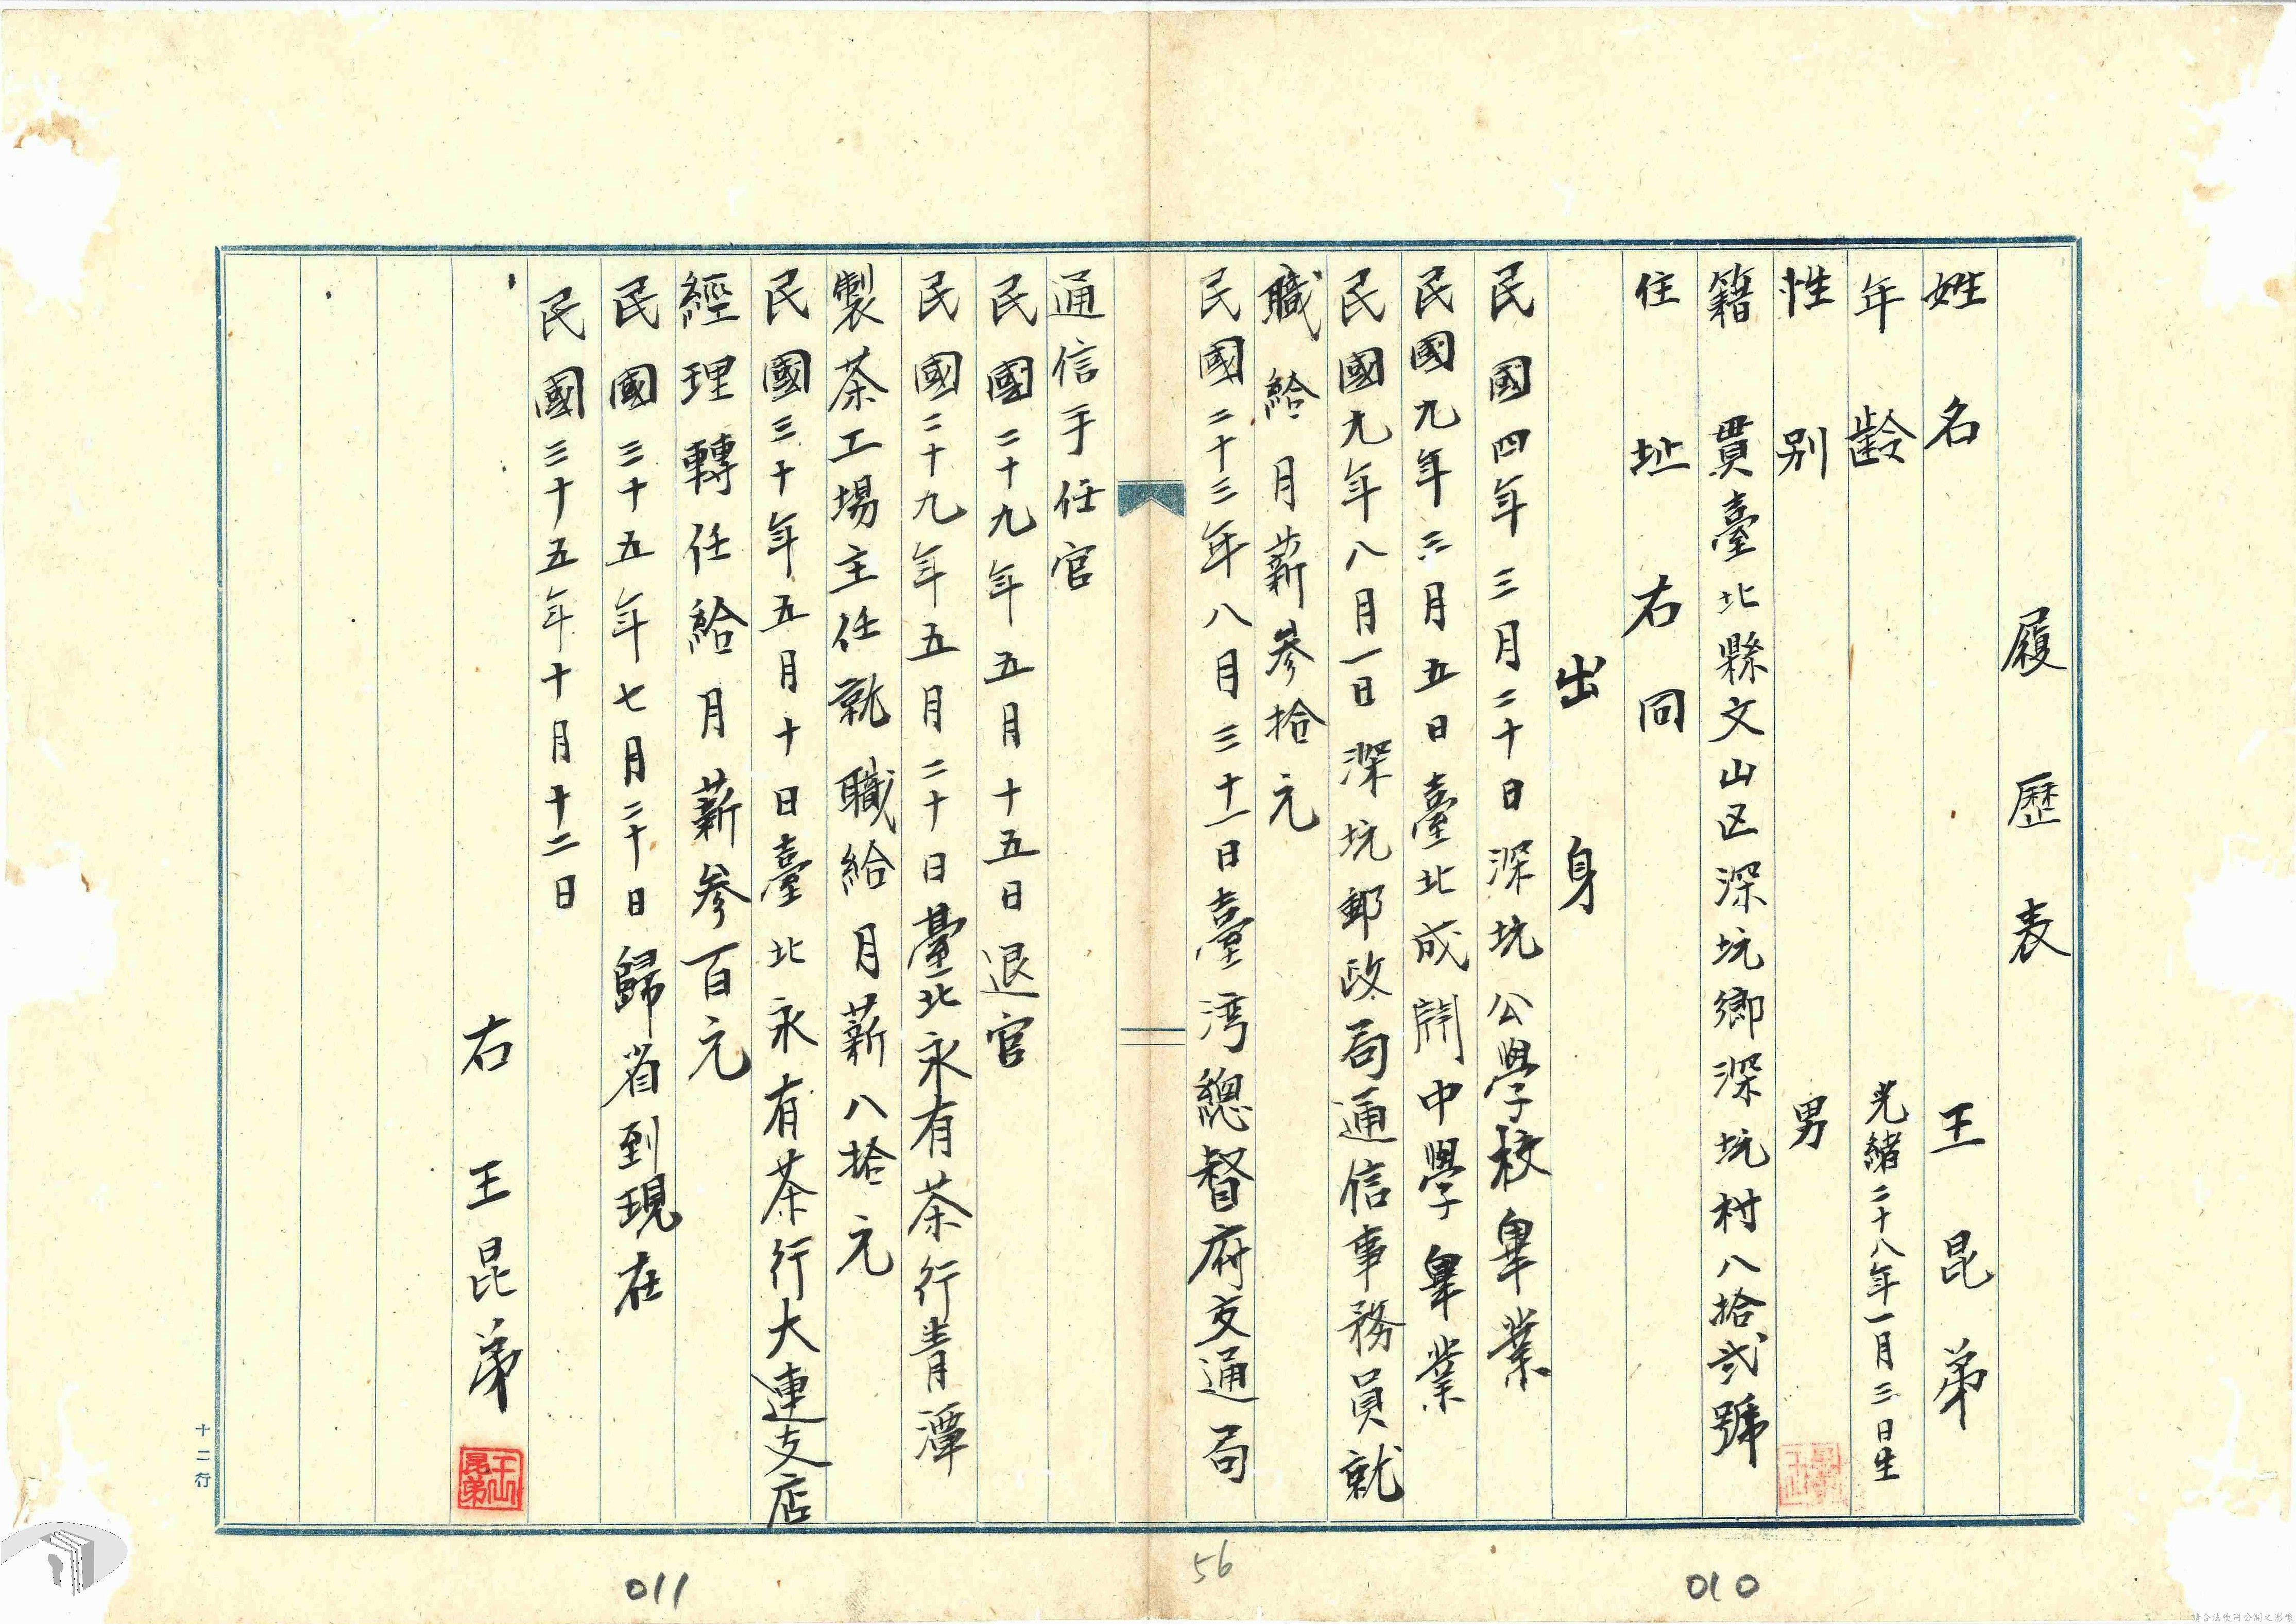 履歷表
姓名 王昆弟
年齡 光緒二十八年一月三日生
性别 男
籍貫臺北縣文山区深坑鄉深坑村八拾弍號
住址 右同
出身
民國四年三月二十日深坑公學校畢業
民國九年三月五日臺北成開中學畢業
民國九年八月一日深坑郵政局通信事務員就
職給月薪參拾元
民國二十三年八月三十一日臺湾總督府交通局
通信手任官
民國二十九年五月十五日退官
民國二十九年五月二十日臺北永有茶行青潭
製茶工場主任就職給月薪八拾元
民國三十年五月十日臺北永有茶行大連支店
經理轉任給月薪參百元
民國三十五年七月二十日歸省到現在
民國三十五年十月十二日
右 王昆弟
王昆弟
十二行
010
56
011
請合法使用公開之影像